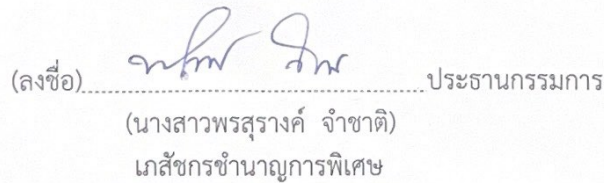 (ลงชื่อ)........................................................ประธานกรรมการ
(นางสาวพรสุรางค์ จำชาติ)
เภสัชกรชำนาญการพิเศษ